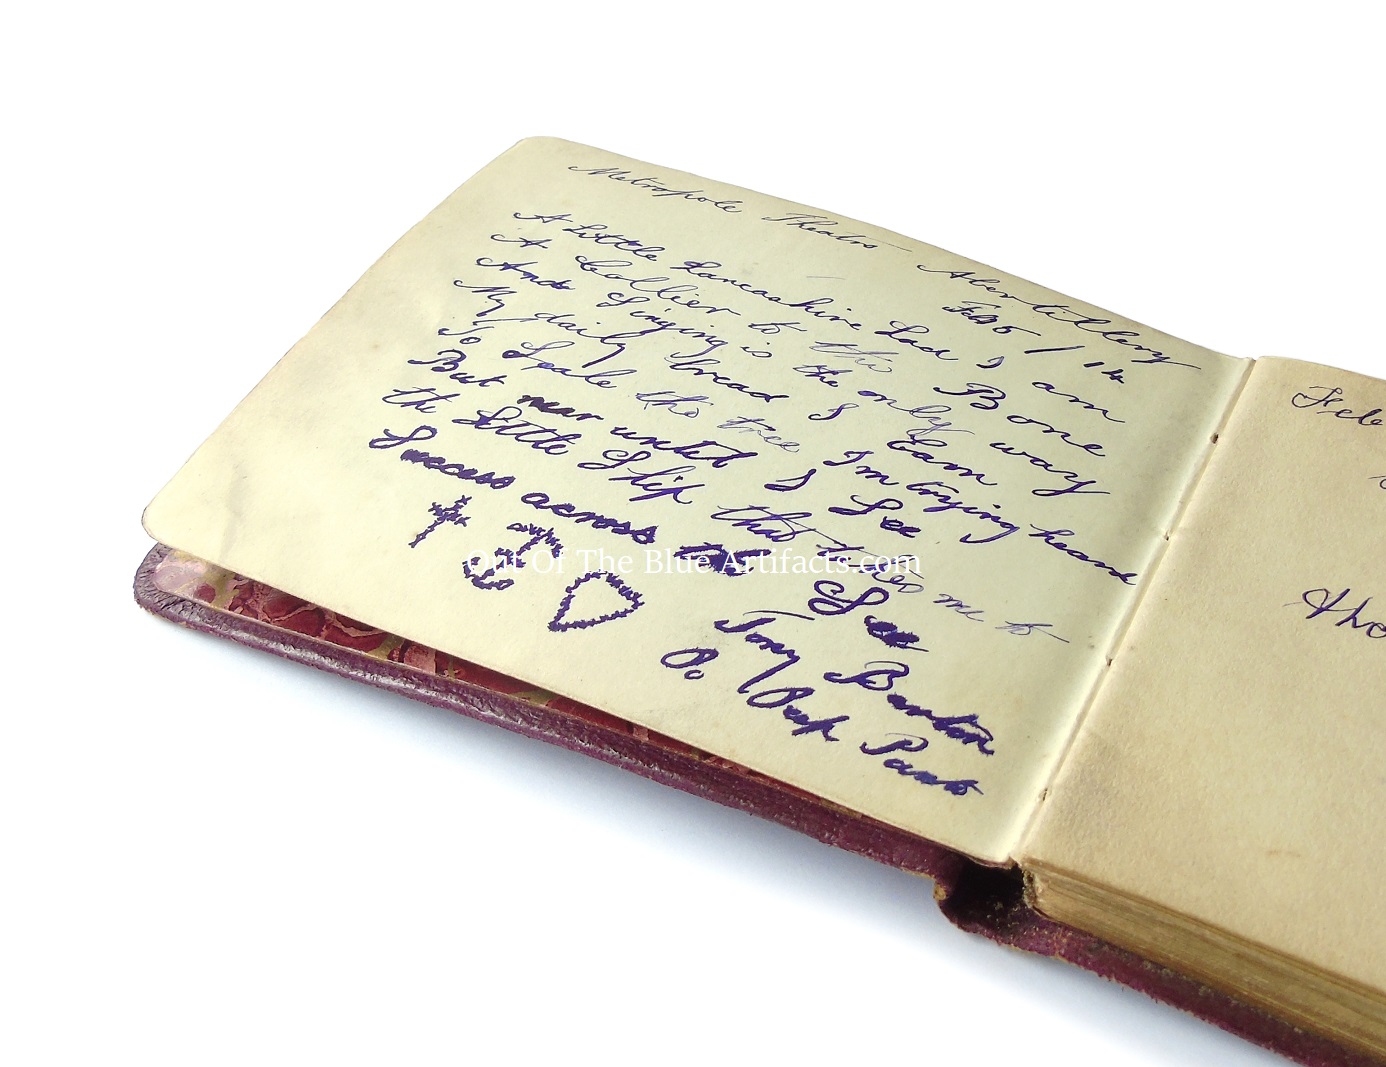 Metropole Theatre Abertillery
Feb 5 / 14
A Little Lancashire Lad I am
A Collier to the Bone
And Singing is the only way
My daily bread I Earn
To Speak the tree Im trying heard
But near until I See
the Little Ship that takes me to
Success across the See
Tony Barton
Peep Parts
Out Of The Blue Artifacts.com